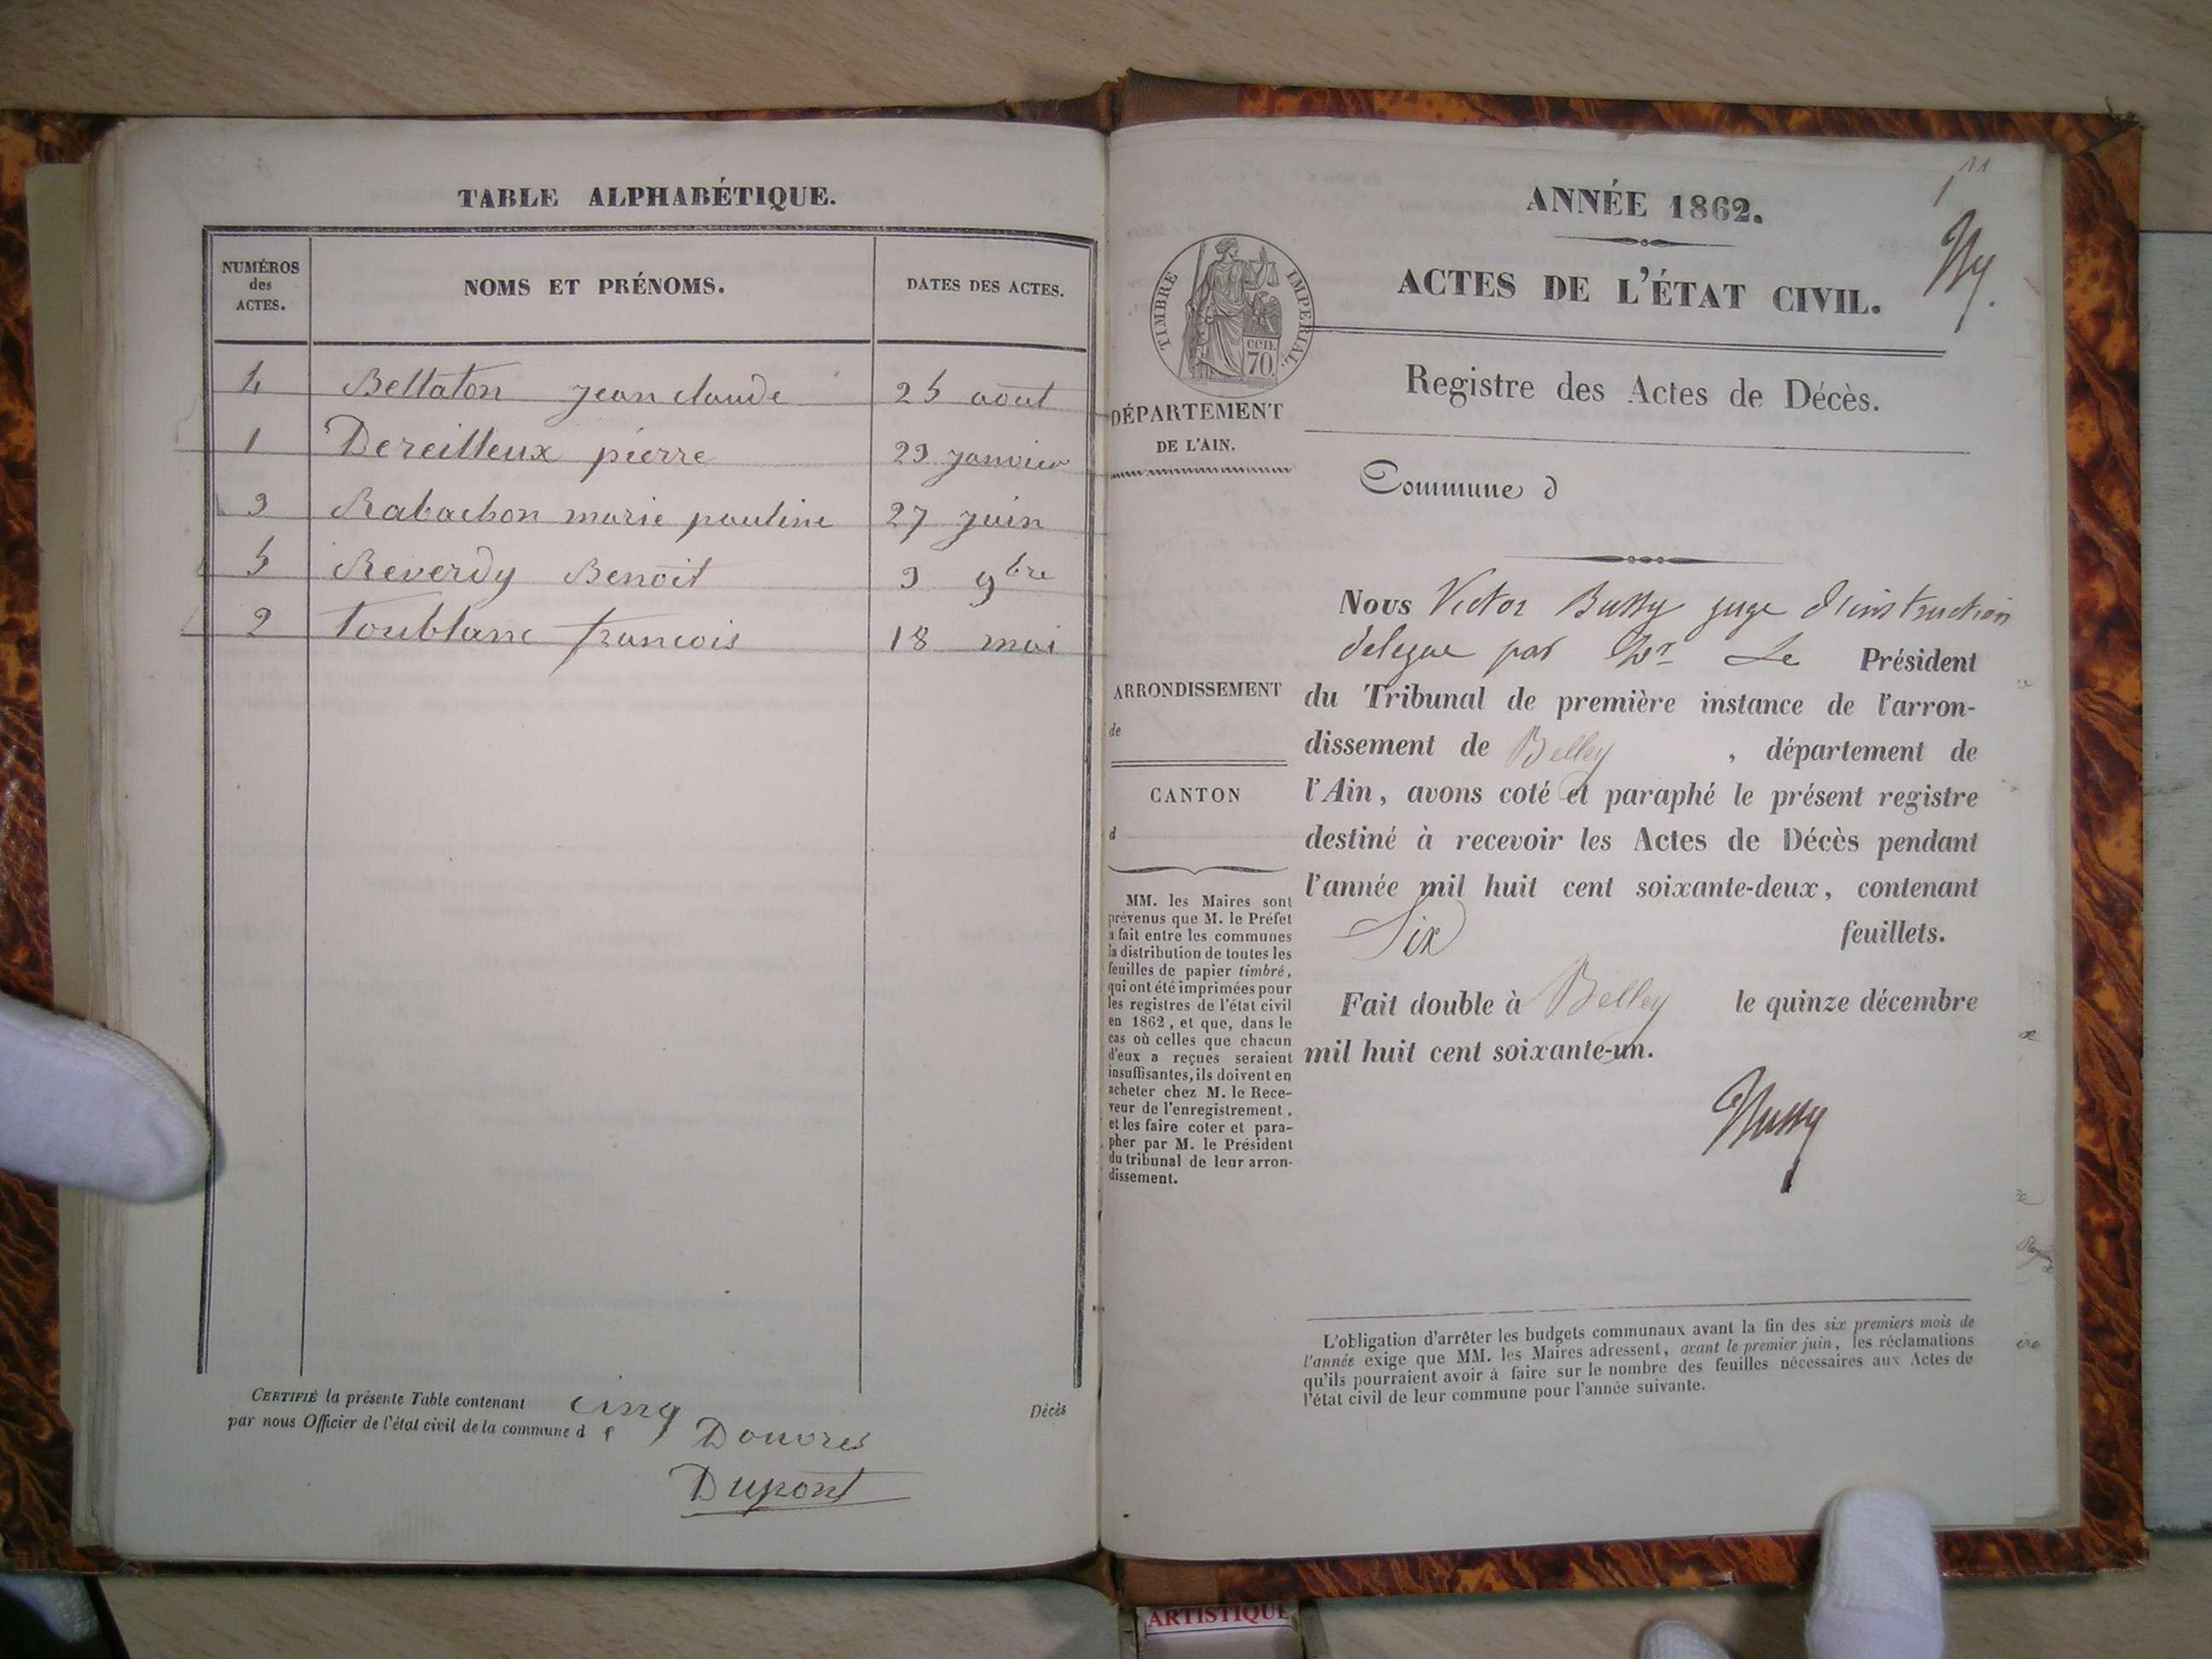 TABLE ALPHABÉTIQUE.
NUMÉROS
des
ACTES.
NOMS ET PRÉNOMS.
DATES DES ACTES.
4 Bellaton jean claude 25 aout
1 Dereilleux pierre 29 janvier
3 Rabachon marie pauline 27 juin
5 Reverdy Benoit 3 9bre
2 Toublanc francois 18 mai
CERTIFIÉ la présente Table contenant cinq Décès
par nous Officier de l'état civil de la commune d e Douvres
Dupont
ANNÉE 1862.
ACTES DE L'ÉTAT CIVIL.
TIMBRE IMPERIAL.
cen.
70.
DÉPARTEMENT
DE L'AIN.
ARRONDISSEMENT
de
CANTON
d
MM. les Maires sont
prévenus que M. le Préfet
a fait entre les communes
la distribution de toutes les
feuilles de papier timbré,
qui ont été imprimées pour
les registres de l'état civil
en 1862, et que, dans le
cas où celles que chacun
d'eux a reçues seraient
insuffisantes, ils doivent en
acheter chez M. le Rece-
veur de l'enregistrement,
et les faire coter et para-
pher par M. le Président
du tribunal de leur arron-
dissement.
Registre des Actes de Décès.
Commune d
Nous Victor Bussy juge d'instruction
delegue par Mr Le Président
du Tribunal de première instance de l'arron-
dissement de Belley , département de
l'Ain, avons coté et paraphé le présent registre
destiné à recevoir les Actes de Décès pendant
l'année mil huit cent soixante-deux, contenant
Six feuillets.
Fait double à Belley le quinze décembre
mil huit cent soixante-un.
Bussy
L'obligation d'arrêter les budgets communaux avant la fin des six premiers mois de
l'année exige que MM. les Maires adressent, avant le premier juin, les réclamations
qu'ils pourraient avoir à faire sur le nombre des feuilles nécessaires aux Actes de
l'état civil de leur commune pour l'année suivante.
ARTISTIQUE